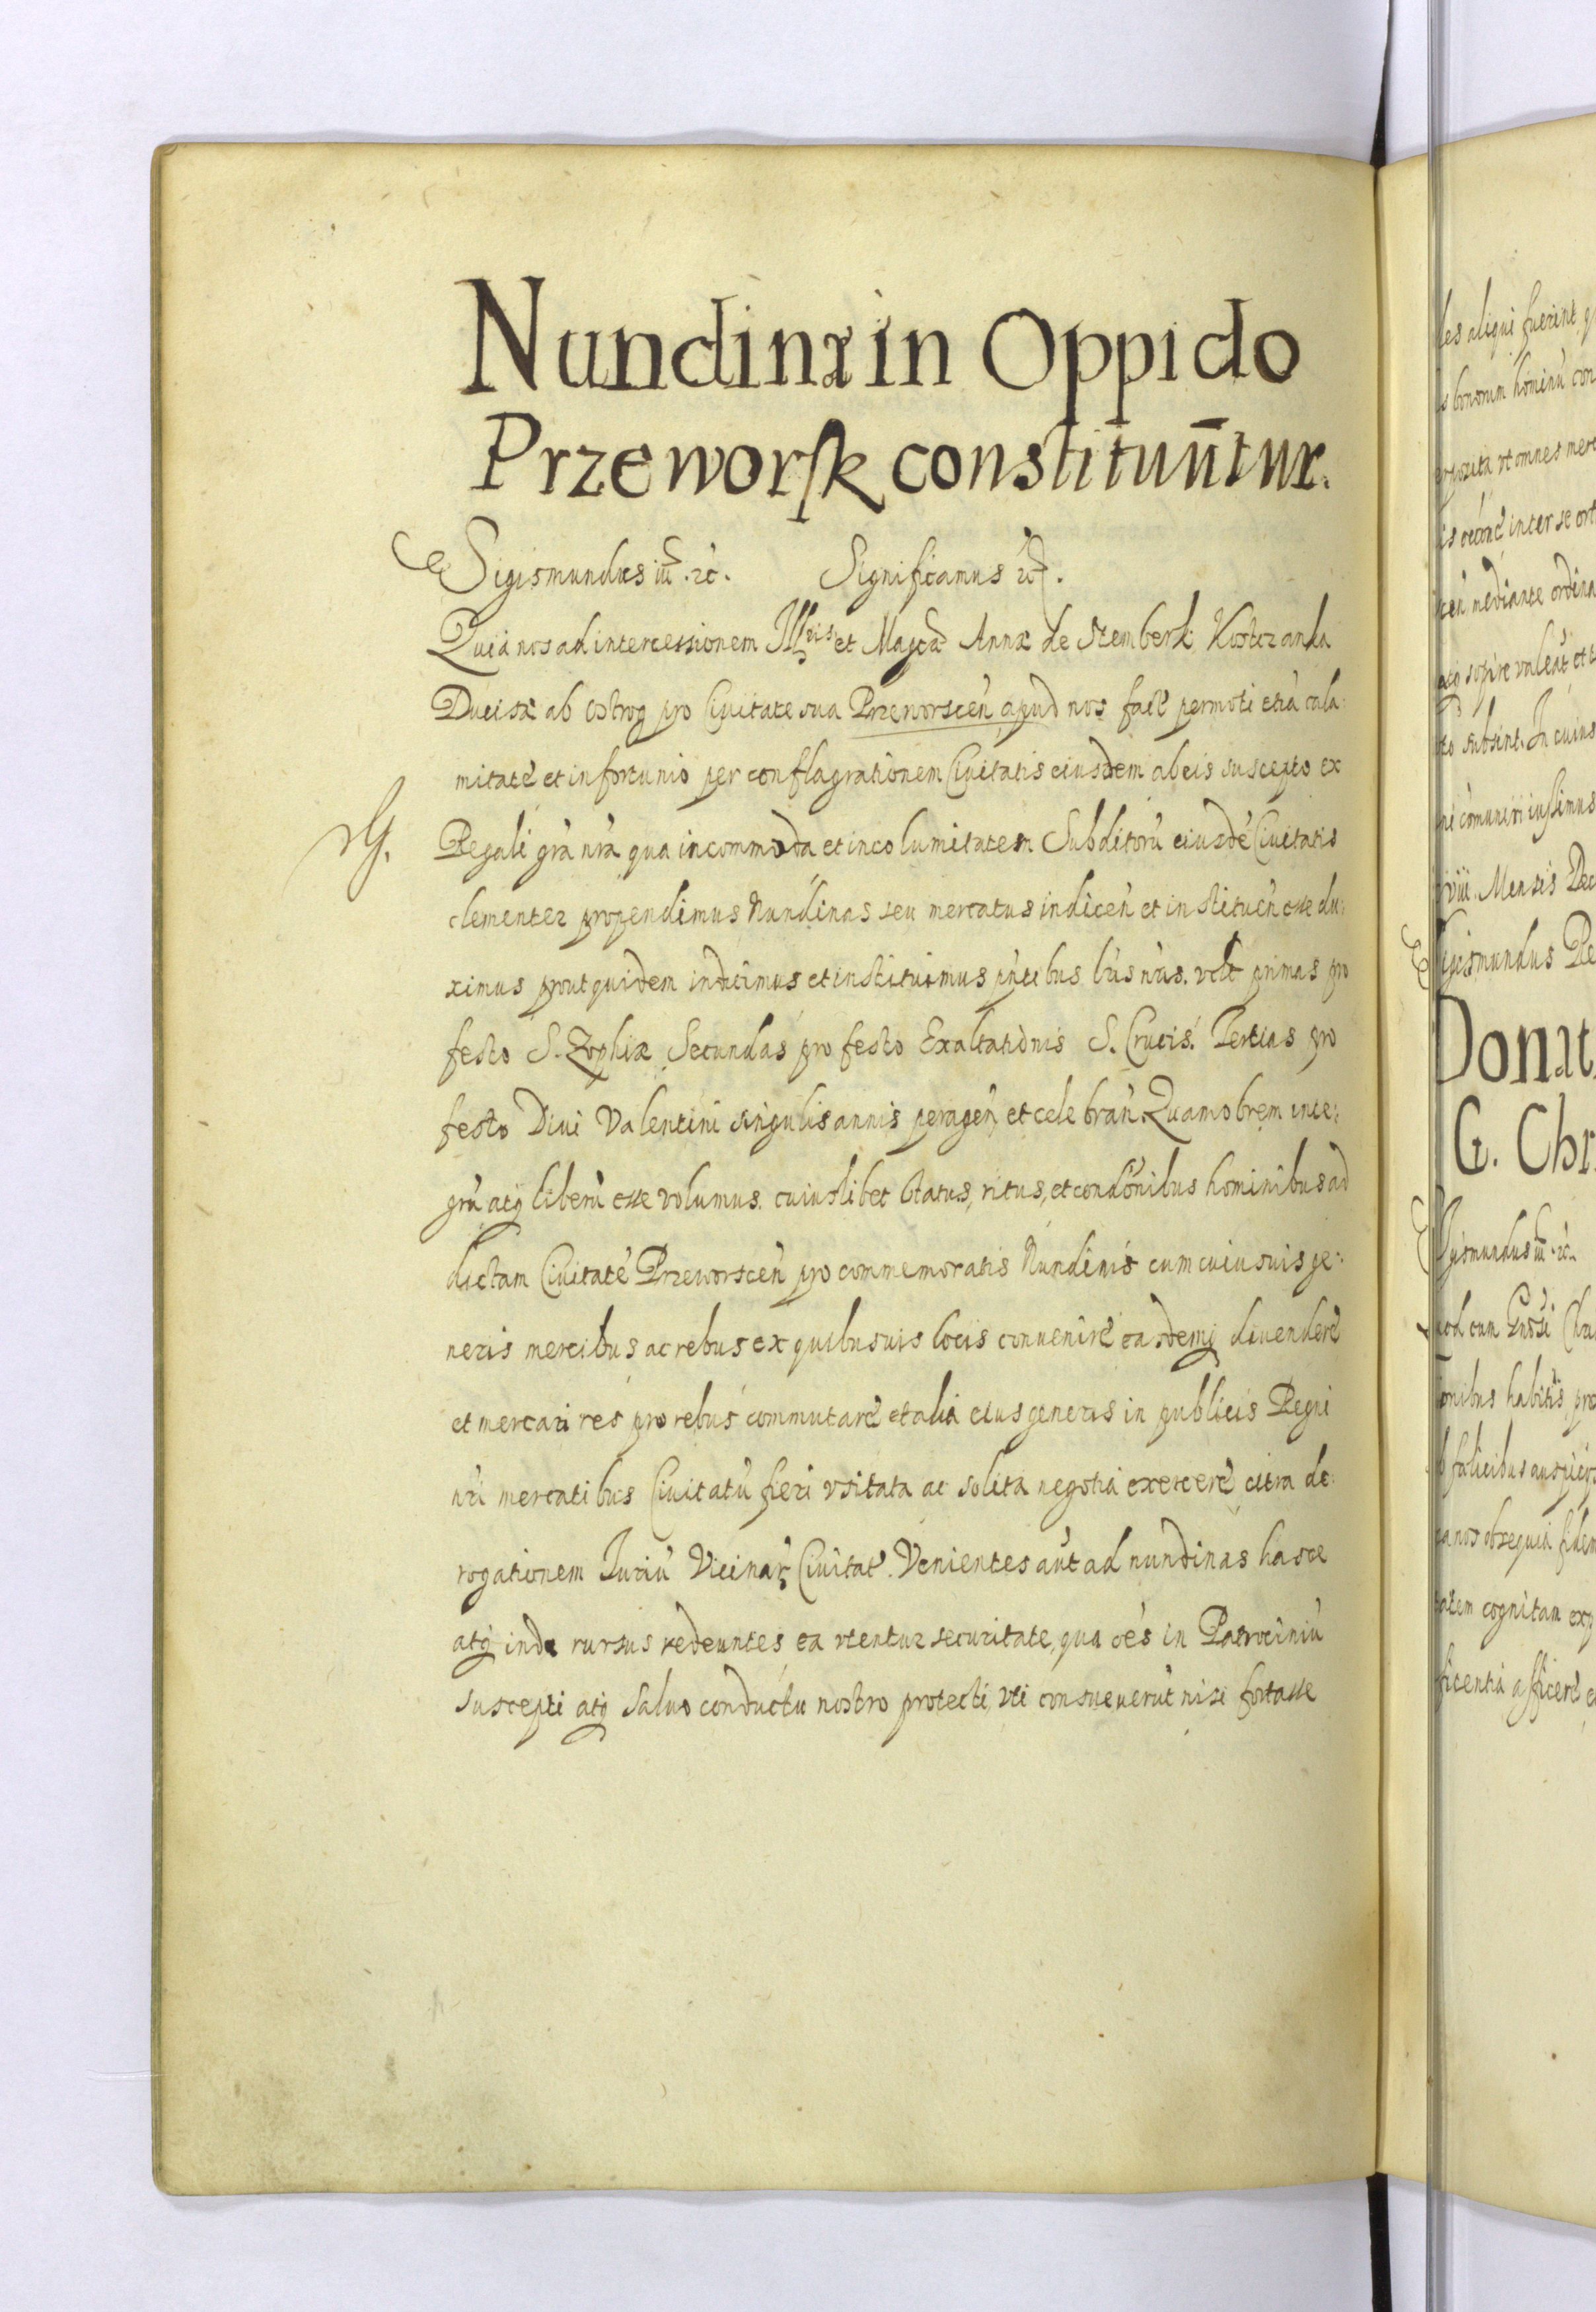 Nundinæ in Oppido
Przeworsk constituuntur.
Sigismundus iii. etc. Significamus etc.
Quia nos ad intercessionem et Magcæ Annæ de Stemberk Kostczanka
Ducisæ ab Ostrog pro Ciuitate sua Przeworscen̄ apud nos permoti etiā cala:
mitatē et infortunio per conflagrationem Ciuitatis eiusdem ab eis suscepto ex
rG. Regali grā nrā qua in commoda et incolumitatem Subditorū eiusdē Ciuitatis
clementer propendimus Nundinas seu mercatus indicen̄ et instituen̄ esse du:
ximus prout quidem indicimus et instituimus pn̄tibus lr̄is nr̄is. primas pro
festo S. Zophiæ Secundas pro festo Exaltationis S. Crucis. Tertias pro
festo Diui Valentini singulis annis peragen̄ et celebran̄ Quamobrem inte:
grū atq liberū esse volumus. cuiuslibet status, ritus, et condōnibus hominibus ad
dictam Ciuitatē Przeworscen̄ pro commemoratis Nundinis cum cuiusuis ge:
neris mercibus ac rebus ex quibusuis locis conuenire easdemq diuendere
et mercari res pro rebus commutare et alia eius generis in publicis Regni
nr̄i mercatibus Ciuitatū fieri vsitata ac solita negotia exercere citra de:
rogationem Iuriū Vicinar Ciuitat. Venientes aūt ad nundinas hasce
atq inde rursus redeuntes ea vtentur securitate, qua oēs in Patrociniū
suscepti atq saluo conductu nostro protecti, vti consueuerūt nisi fortasse
les aliqui fuerint
bonorum hominū con
vt omnes merc
inter se ort
mediante ordina
sopire valeāt et
subsint. In cuius
cōmuniri iussimus
viii. Mensis Dec
Sigismundus Re
Donat
G. Chr
Sigismundus iii. etc.
onibus habitis pro
fælicibus auspicijs
nos obsequia fidem
cognitam exp
afficere